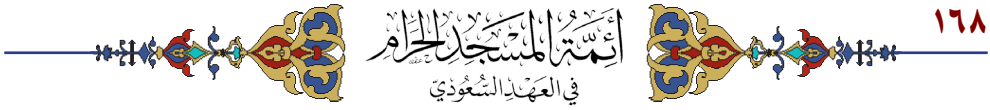 ١٦٨
أَئِمَّةُ المَسْجِدِ الحَرَامِ
فِي العَهْدِ السُّعُودِيّ